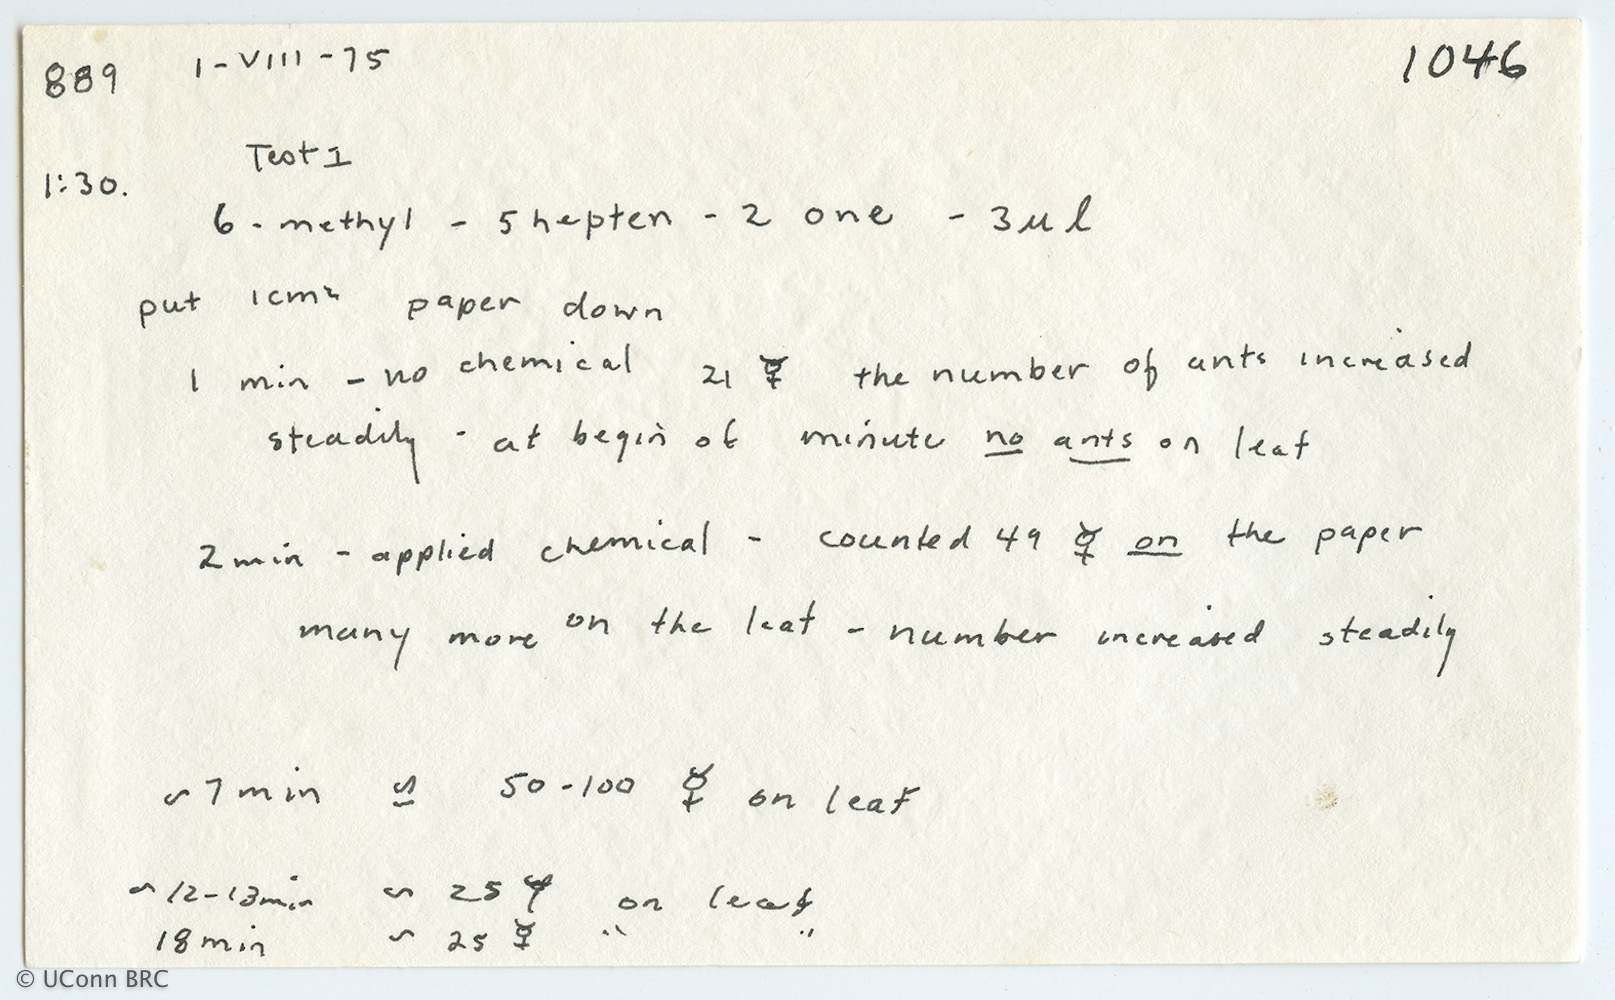 889 1-VIII-75 1046
Test 1
1:30.
6-methyl-5 hepten-2 one - 3µl
put 1cm² paper down
1 min - no chemical 21 ☿ the number of ants increased
steadily - at begin of minute no ants on leaf
2 min - applied chemical - counted 49 ☿ on the paper
many more on the leaf - number increased steadily
~7 min ≃ 50-100 ☿ on leaf
~12-13min ~ 25 ☿ on leaf
18 min ~ 25 ☿ " "
© UConn BRC